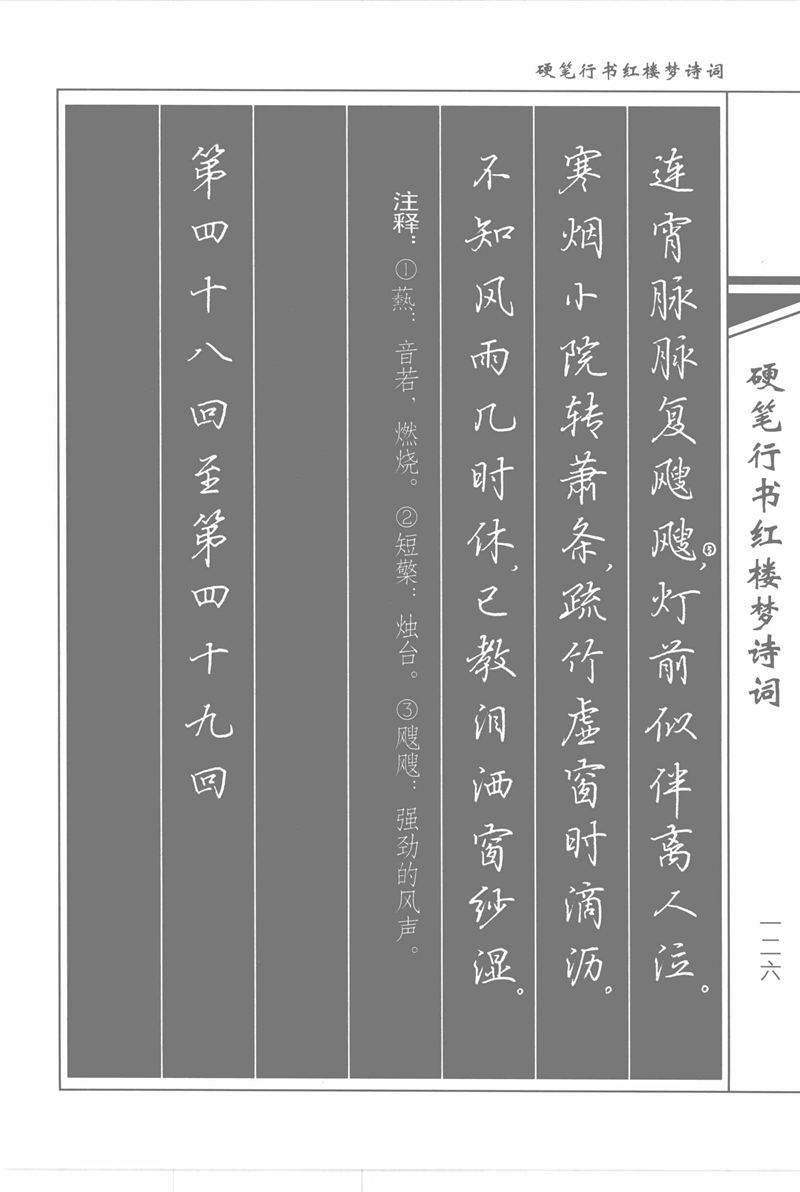 硬笔行书红楼梦诗词
连宵脉脉复飕飕，③灯前似伴离人泣。
寒烟小院转萧条，疏竹虚窗时滴沥。
不知风雨几时休，已教泪洒窗纱湿。
注释：①爇：音若，燃烧。②短檠：烛台。③飕飕：强劲的风声。
第四十八回至第四十九回
硬笔行书红楼梦诗词
一二六